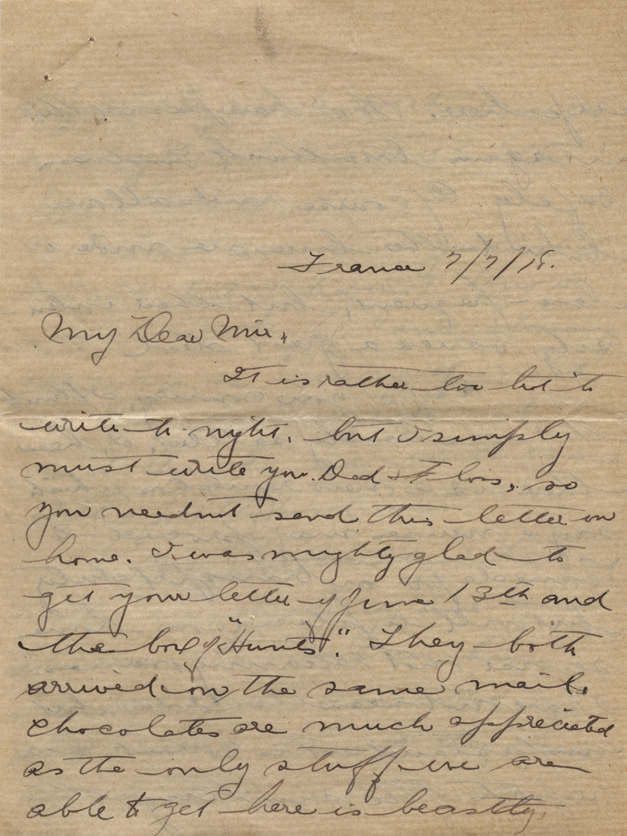 France 7/7/18.
My Dear Mir,
It is rather too hot to
write to-night, but I simply
must write you. Dad & Flos, so
you neednt send this letter on
home. I was mighty glad to
get your letter of June 13th and
the box of "Hunts". They both
arrived on the same mail.
Chocolates are much appreciated
as the only stuff we are
able to get here is beastly,